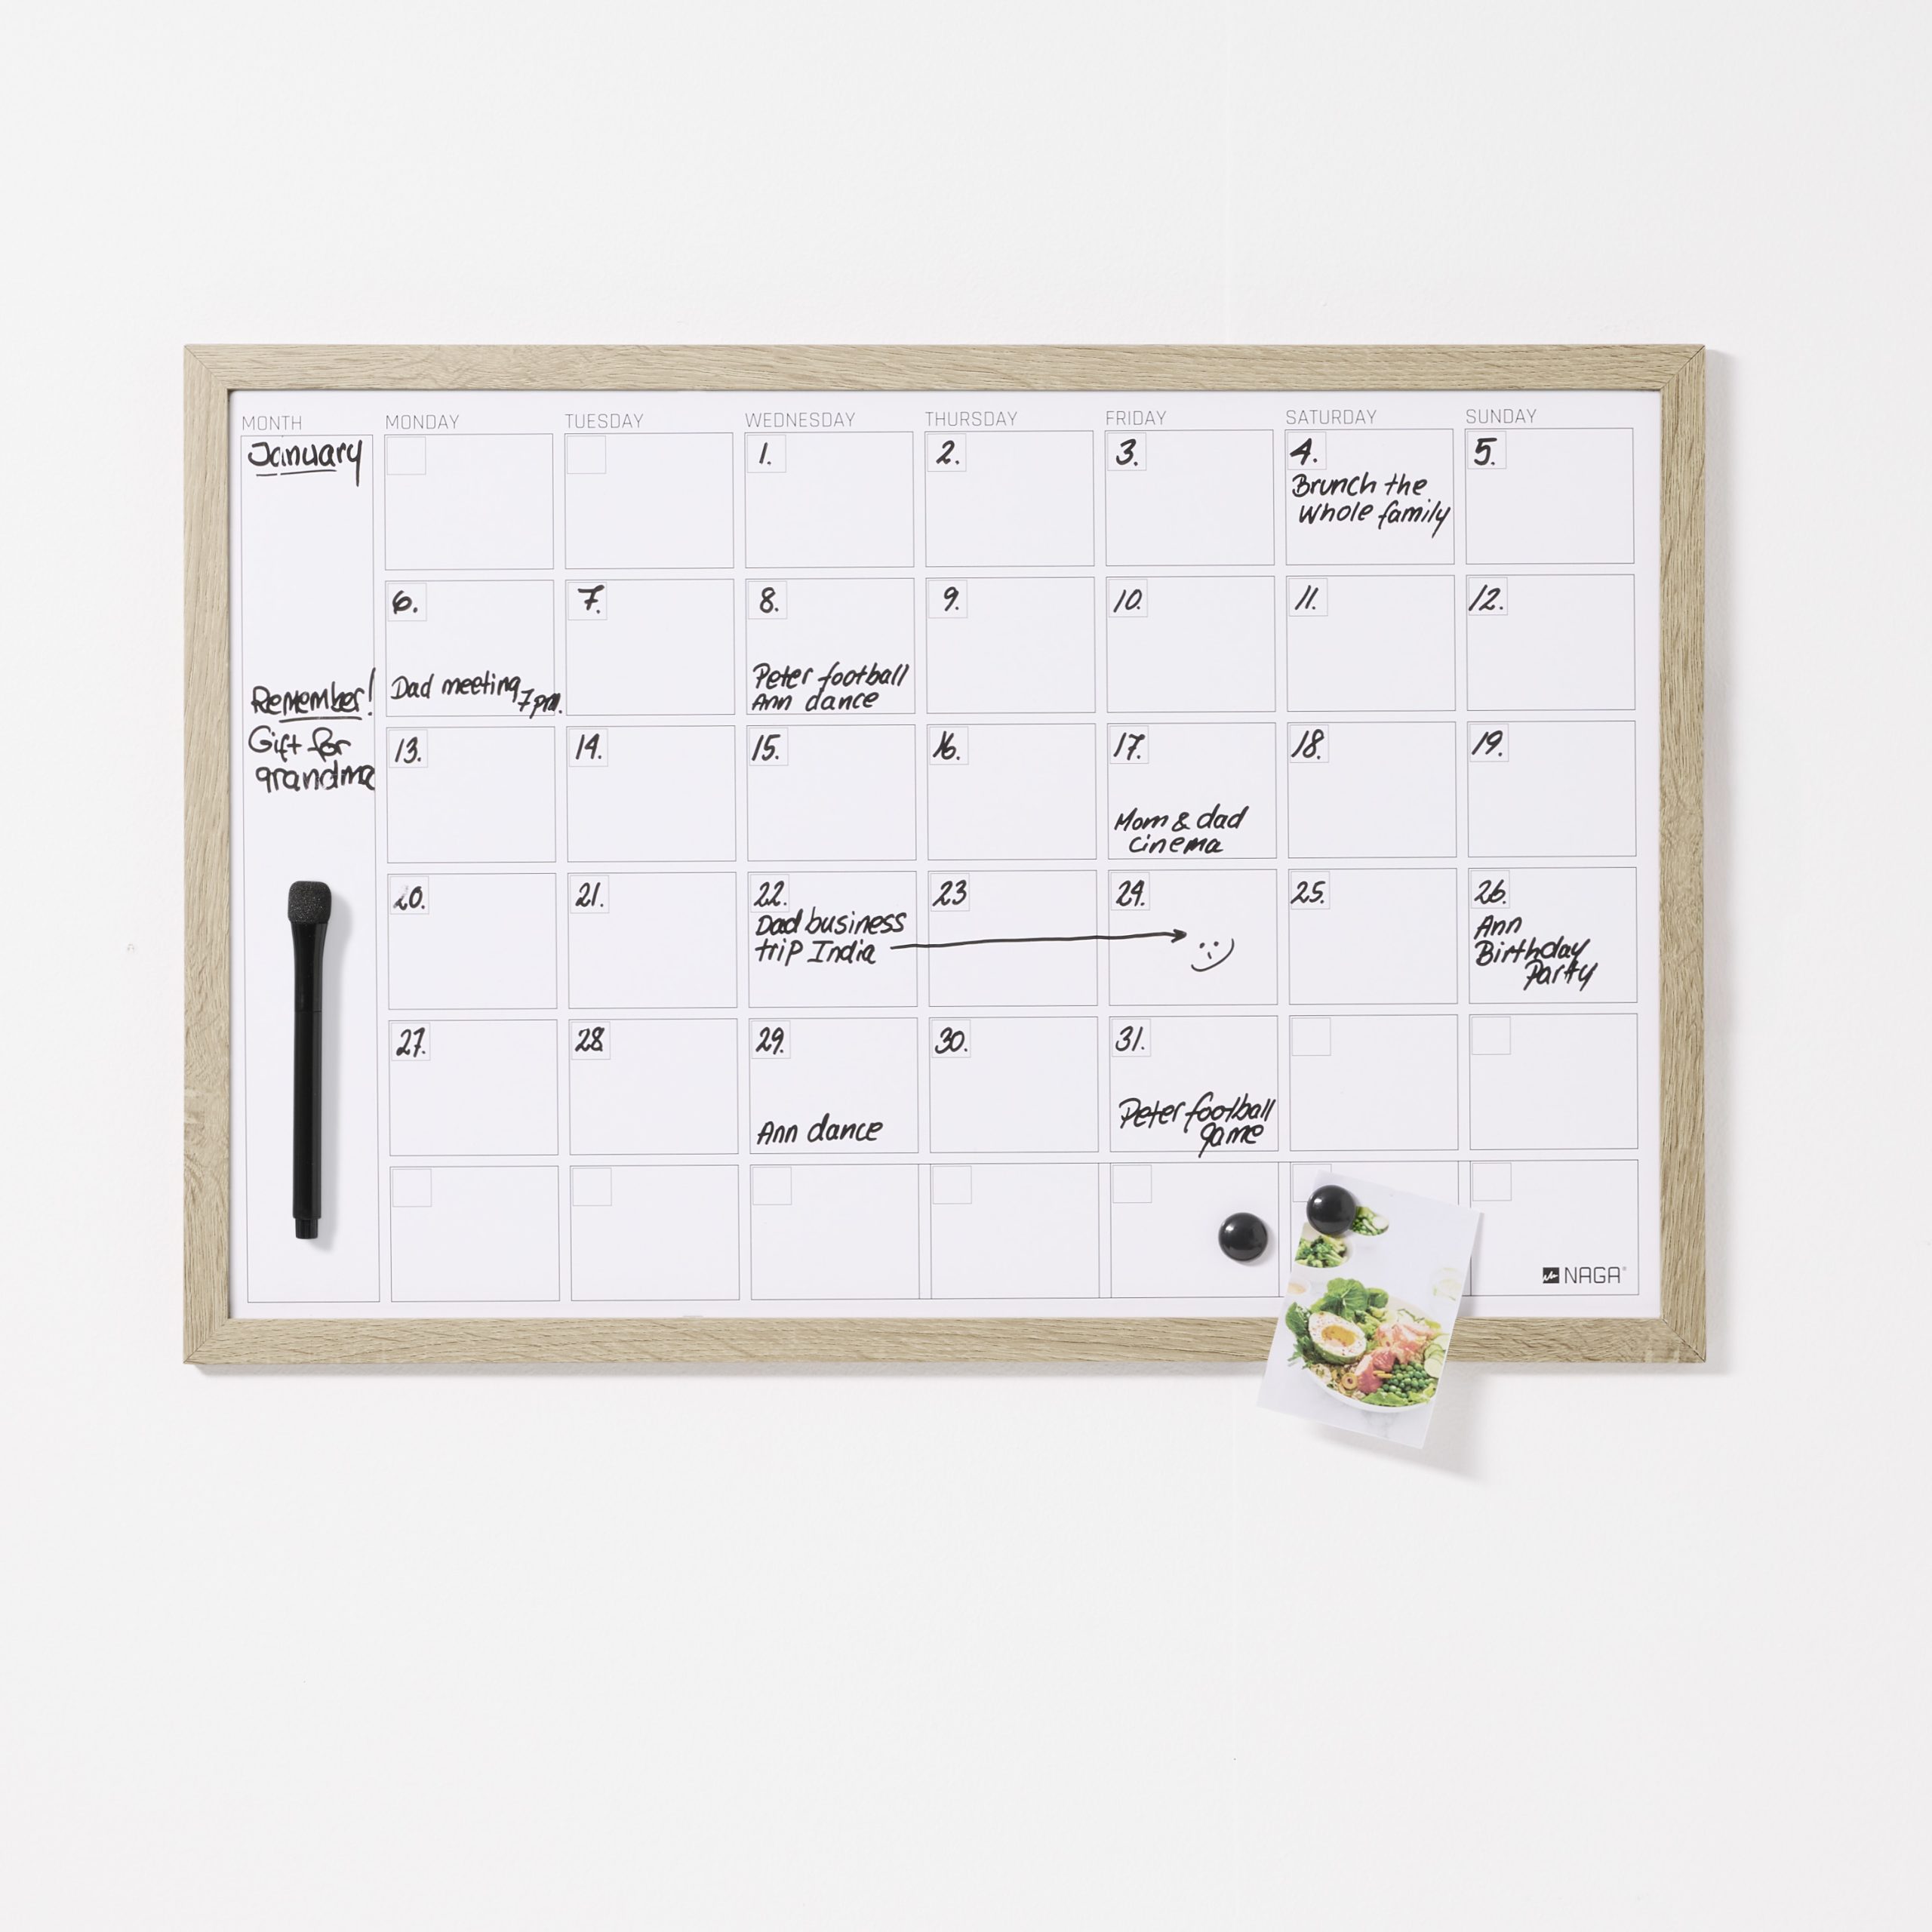 MONTH MONDAY TUESDAY WEDNESDAY THURSDAY FRIDAY SATURDAY SUNDAY
January
1. 2. 3. 4. 5.
Brunch the
whole family
6. 7. 8. 9. 10. 11. 12.
Dad meeting
7pm.
Peter football
Ann dance
Remember!
Gift for
grandma
13. 14. 15. 16. 17. 18. 19.
Mom & dad
cinema
20. 21. 22. 23 24. 25. 26.
Dad business
trip India
Ann
Birthday
Party
27. 28 29. 30. 31.
Ann dance
Peter football
game
NAGA®